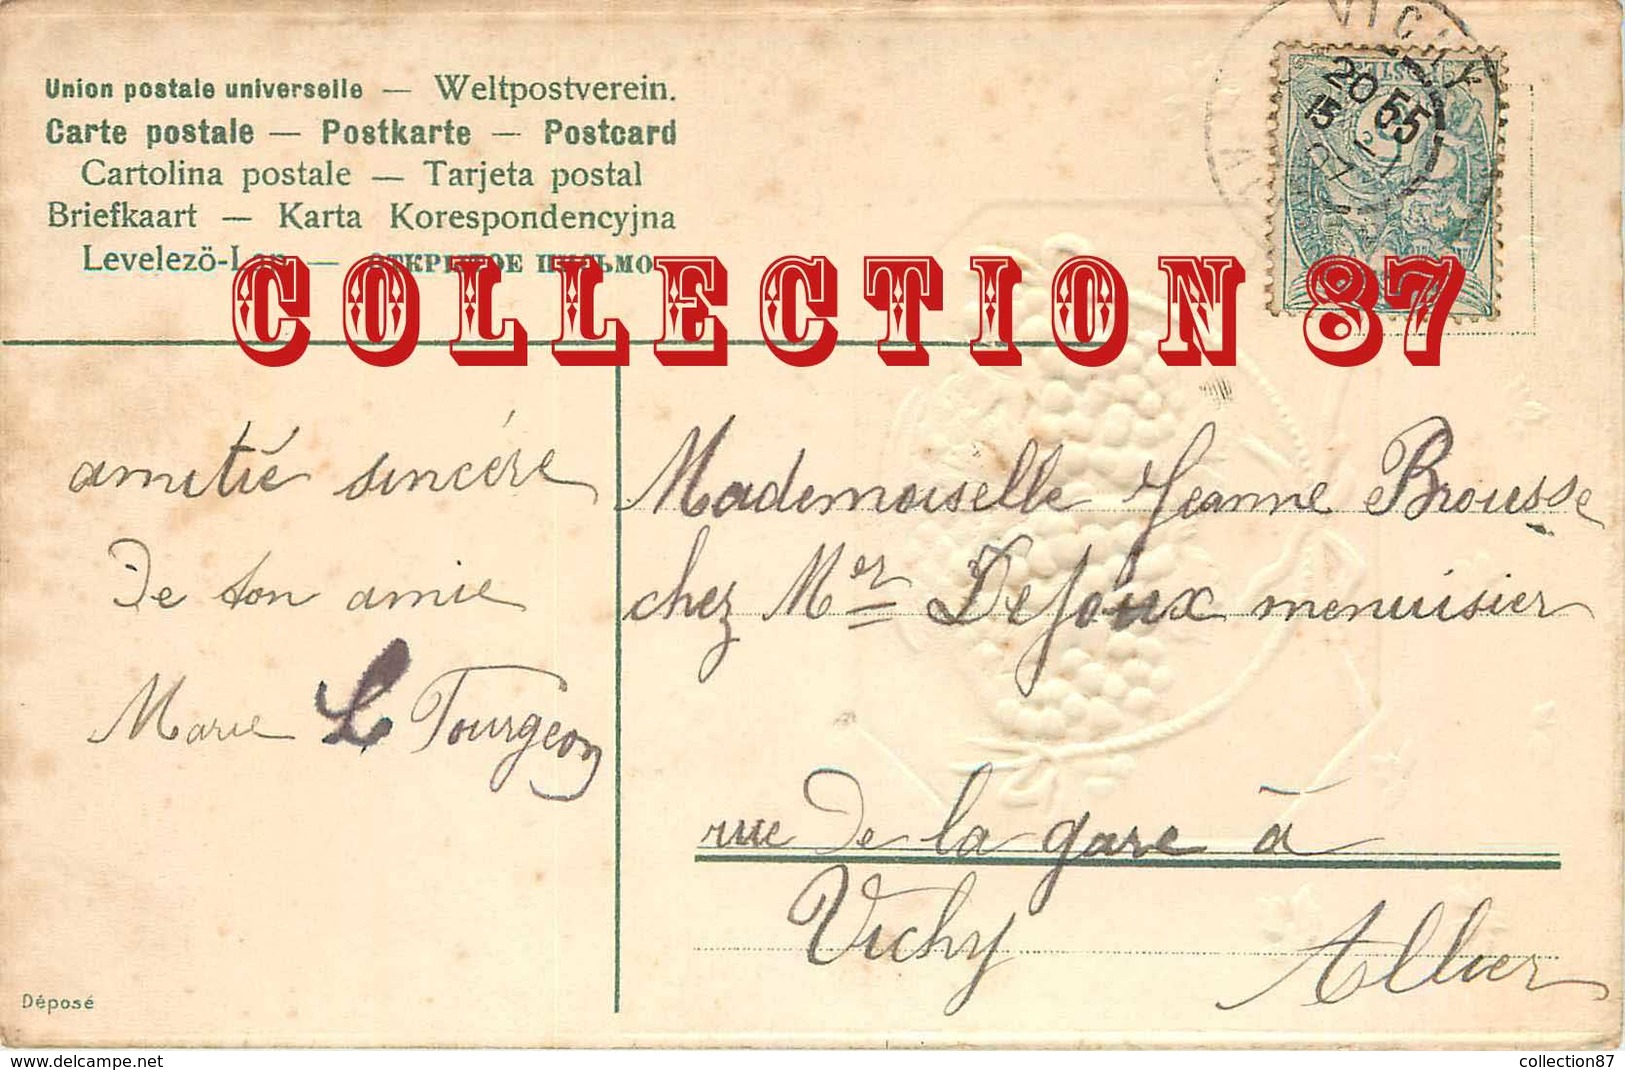 Union postale universelle — Weltpostverein.
Carte postale — Postkarte — Postcard
Cartolina postale — Tarjeta postal
Briefkaart — Karta Korespondencyjna
Levelezö-Lap — ОТКРЫТОЕ ПИСЬМО
VICHY
20 55
15
07
COLLECTION 87
amitié sincère
De ton amie
Marie Le Tourgeon
Mademoiselle Jeanne Brousse
chez Mer Dejoux menuisier
rue De la gare à
Vichy
Allier
Déposé
delcampe.net
collection87